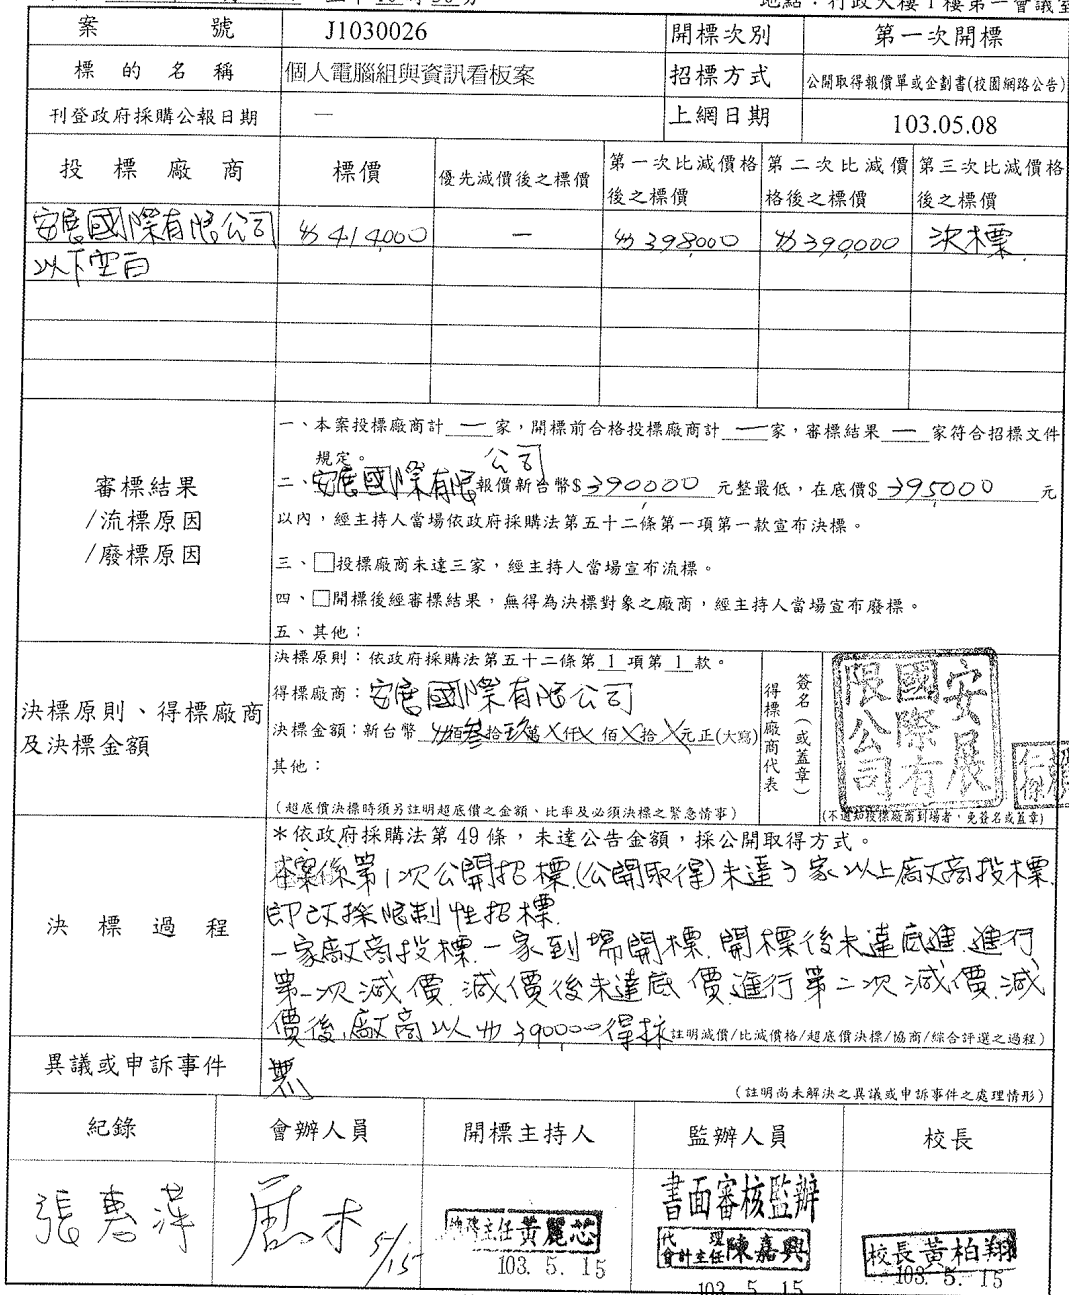 地點：行政大樓1樓第一會議室
案 號 J1030026 開標次別 第一次開標
標的名稱 個人電腦組與資訊看板案 招標方式 公開取得報價單或企劃書(校園網路公告)
刊登政府採購公報日期 — 上網日期 103.05.08
投標廠商 標價 優先減價後之標價 第一次比減價格後之標價 第二次比減價格後之標價 第三次比減價格後之標價
安展國際有限公司 414,000 — 398,000 390,000 決標
以下空白
審標結果
/流標原因
/廢標原因
一、本案投標廠商計一家，開標前合格投標廠商計一家，審標結果一家符合招標文件
規定。
二、安展國際有限公司報價新台幣$390,000元整最低，在底價$395,000元
以內，經主持人當場依政府採購法第五十二條第一項第一款宣布決標。
三、□投標廠商未達三家，經主持人當場宣布流標。
四、□開標後經審標結果，無得為決標對象之廠商，經主持人當場宣布廢標。
五、其他：
決標原則、得標廠商
及決標金額
決標原則：依政府採購法第五十二條第1項第1款。
得標廠商：安展國際有限公司
決標金額：新台幣 佰叁拾玖萬X仟X佰X拾X元正(大寫)
其他：
(超底價決標時須另註明超底價之金額、比率及必須決標之緊急情事)
得標廠商代表
簽名（或蓋章）
安展國際有限公司
(不通知投標廠商到場者，免簽名或蓋章)
決標過程
＊依政府採購法第49條，未達公告金額，採公開取得方式。
案係第1次公開招標(公開取得)未達3家以上廠商投標
即改採限制性招標.
一家廠商投標.一家到場開標.開標後未達底進.進行
第一次減價.減價後未達底價.進行第二次減價.減
價後,廠商以390,000得標
註明減價/比減價格/超底價決標/協商/綜合評選之過程)
異議或申訴事件 無
(註明尚未解決之異議或申訴事件之處理情形)
紀錄 會辦人員 開標主持人 監辦人員 校長
張惠萍
5/15
總務主任黃麗芯
103. 5. 15
書面審核監辦
代理會計主任陳嘉興
103. 5. 15
校長黃柏翔
103. 5. 15